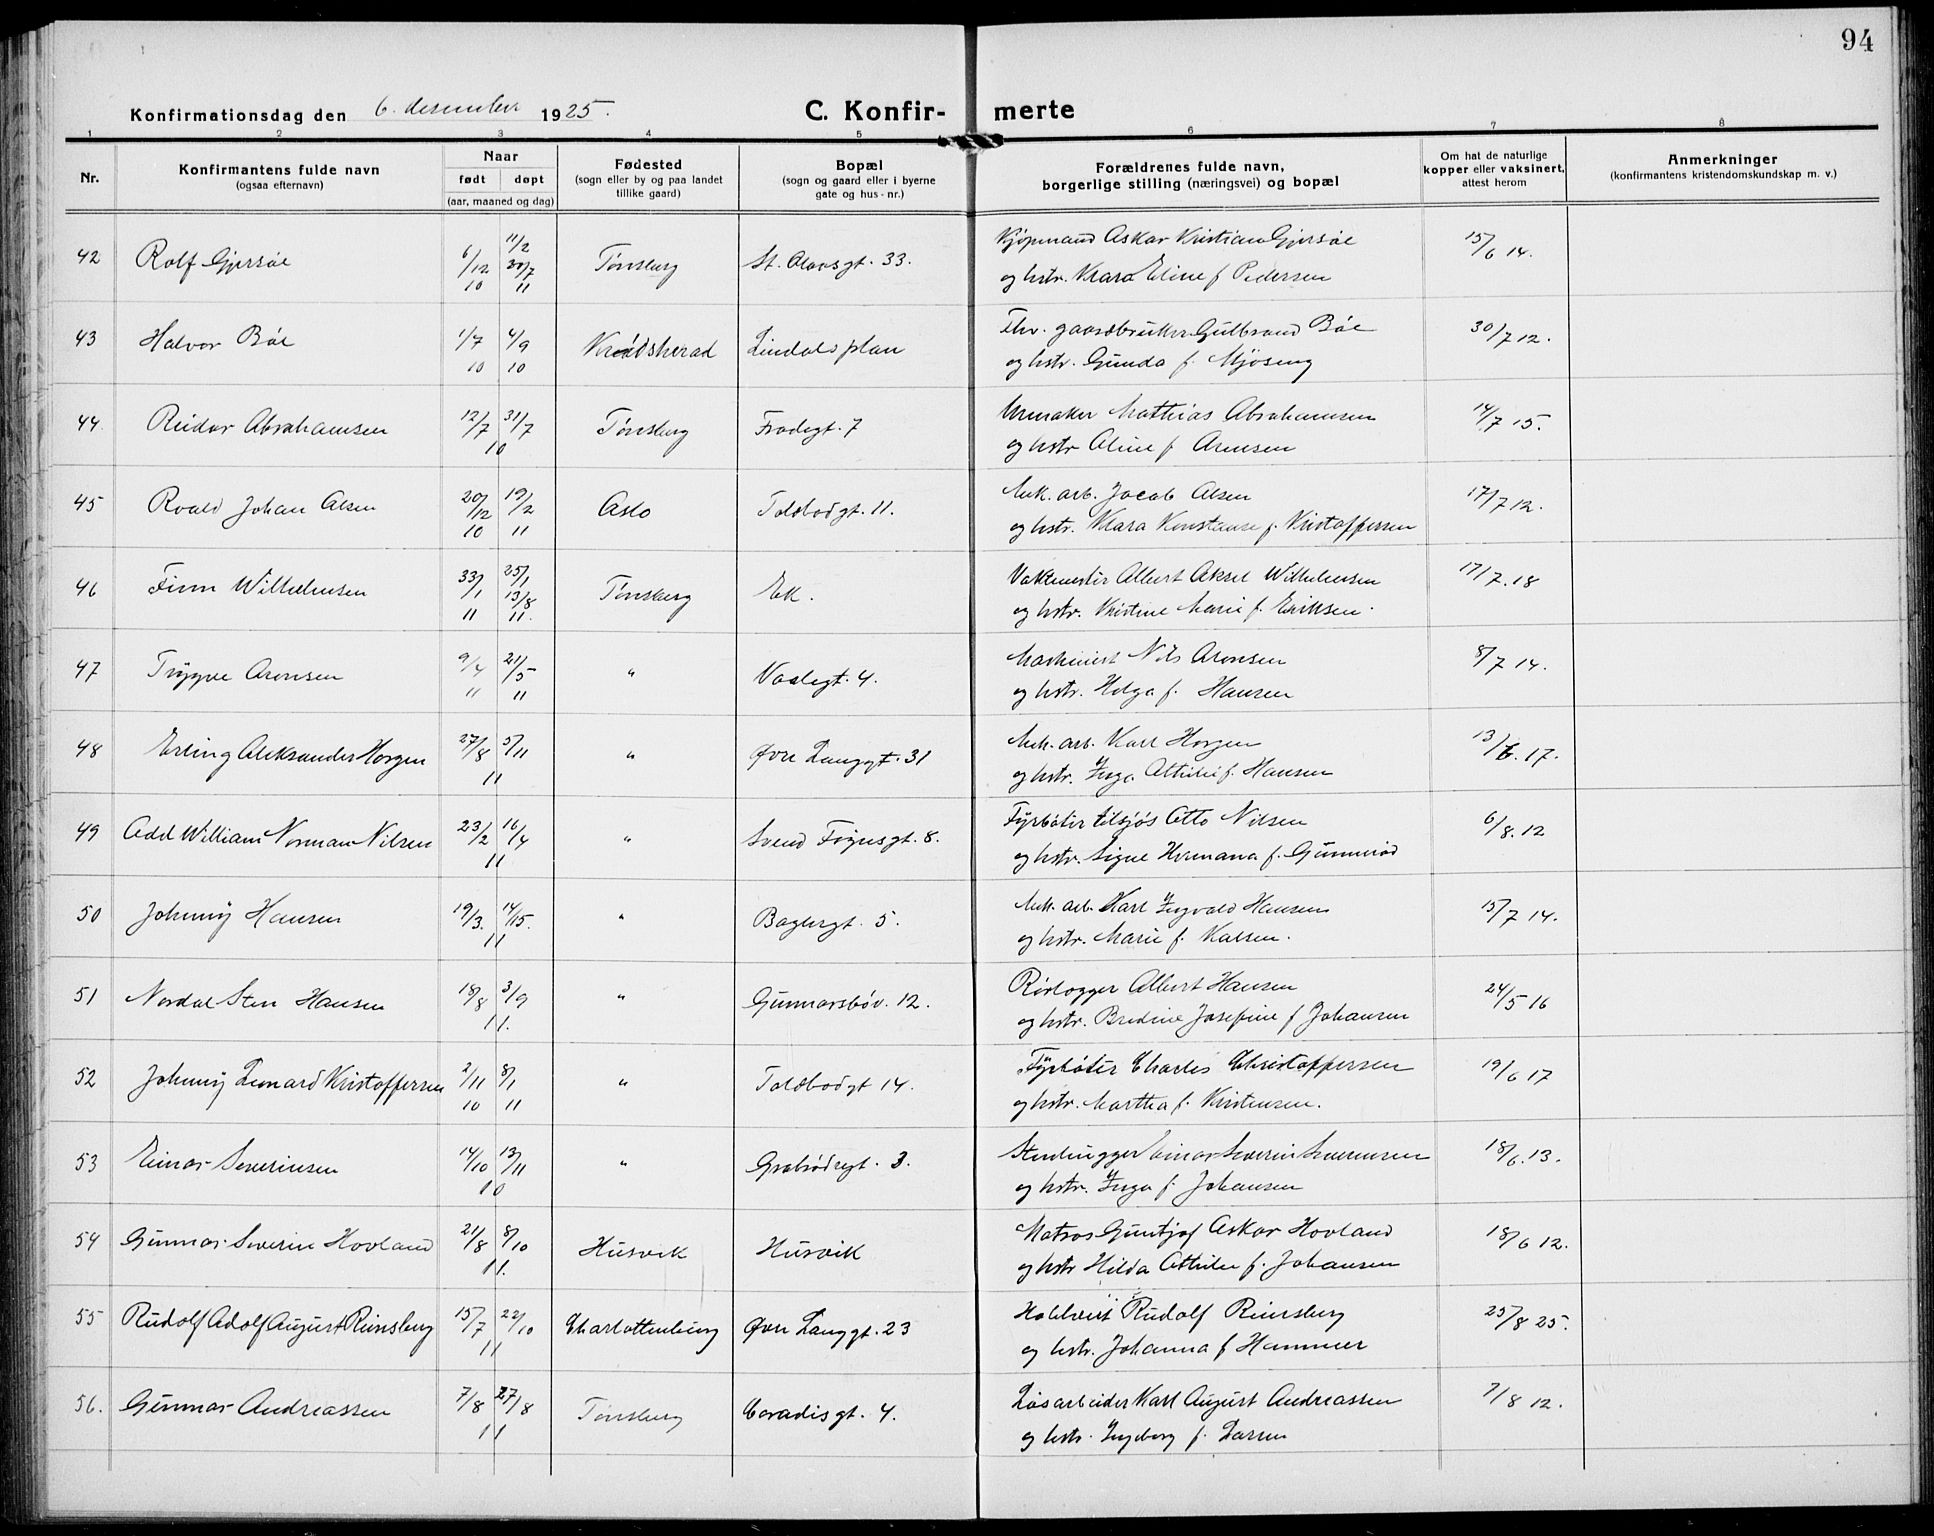 94
Konfirmationsdag den 6. desember 1925.
C. Konfir- merte
1 2 3 4 5 6 7 8
Nr.
Konfirmantens fulde navn
(ogsaa efternavn)
Naar
født døpt
(aar, maaned og dag)
Fødested
(sogn eller by og paa landet
tillike gaard)
Bopæl
(sogn og gaard eller i byerne
gate og hus-nr.)
Forældrenes fulde navn,
borgerlige stilling (næringsvei) og bopæl
Om hat de naturlige
kopper eller vaksinert,
attest herom
Anmerkninger
(konfirmantens kristendomskundskap m. v.)
42 Rolf Gjersøe 6/12 10 11/2 30/7 11 Tønsberg St. Olavsgt. 33. Kjøpmand Oskar Kristian Gjersøe 15/6 14.
og hstr. Klara Eline f Pedersen
43 Halvor Bøe 1/7 10 4/9 10 Krødsherad Lindals plan Fhv. gaardbruker Gulbrand Bøe 30/7 12.
og hstr. Gunda f. Mjøseng
44. Reidar Abrahamsen 12/7 31/7 10 Tønsberg Frodegt. 7 Urmaker Mathias Abrahamsen 14/7 15.
og hstr Oline f Arensen
45 Roald Johan Olsen 20/12 10 19/2 11 Oslo Toldbodgt. 11. Mek. arb. Jacob Olsen 17/7 12.
og hstr. Klara Konstanse f. Kristoffersen
46 Finn Wilhelmsen 33/1 11 25/1 13/8 11. Tønsberg Ek. Vaktmester Albert Aksel Wilhelmsen 17/7. 18
og hstr. Kristine Marie f. Eriksen.
47 Trygve Aronsen 9/4 11 21/5 11 " Vaalegt. 4. Maskinist Nils Aronsen 8/7 14.
og hstr. Helga f. Hansen
48 Erling Aleksander Horgen 27/8 5/11 11 " Øvre Langgt. 31 Mek. arb. Karl Horgen 13/6. 17.
og hstr. Inga Othilie f. Hansen
49 Odd William Norman Nilsen 23/2 16/4 11 " Svend Føynsgt. 8. Fyrbøter tilsjøs Otto Nilsen 6/8. 12
og hstr. Signe Hermana f. Gunnerød
50 Johnny Hansen 19/3. 14/5. 11 " Baglergt. 5. Mek. arb. Karl Ingvald Hansen 15/7 14.
og hstr. Marie f. Karlsen.
51 Nordal Sten Hansen 18/8 3/9 11. " Gunnarsbøv. 12. Rørlægger Albert Hansen 24/5 16
og hstr. Bredine Josefine f Johansen
52 Johnny Leonard Kristoffersen 2/11 10 8/1 11 " Toldbodgt 14. Fyrbøter Charles Christoffersen 19/6 17
og hstr. Martha f. Kristensen.
53 Einar Severinsen 14/10 13/11 10 " Grabrødregt. 3. Stenhugger Einar Severin Severinsen 18/6. 13.
og hstr. Inga f. Johansen
54 Gunnar Severin Hovland 21/8 8/10 11. Husvik Husvik Matros Guntjof Oskar Hovland 18/6 12.
og hstr Hilda Othilie f. Johansen
55 Rudolf Adolf August Reinsberg 15/7 22/10 11 Charlottenburg Øvre Langgt. 23 Rudolf Reinsberg 25/8 25.
og hstr. Johanna f Hammer
56. Gunnar Andreassen 7/8 27/8 11 Tønsberg Conradisgt. 4. Løsarbeider Karl August Andreassen 7/8 12.
og hstr. Ingeborg f. Larsen